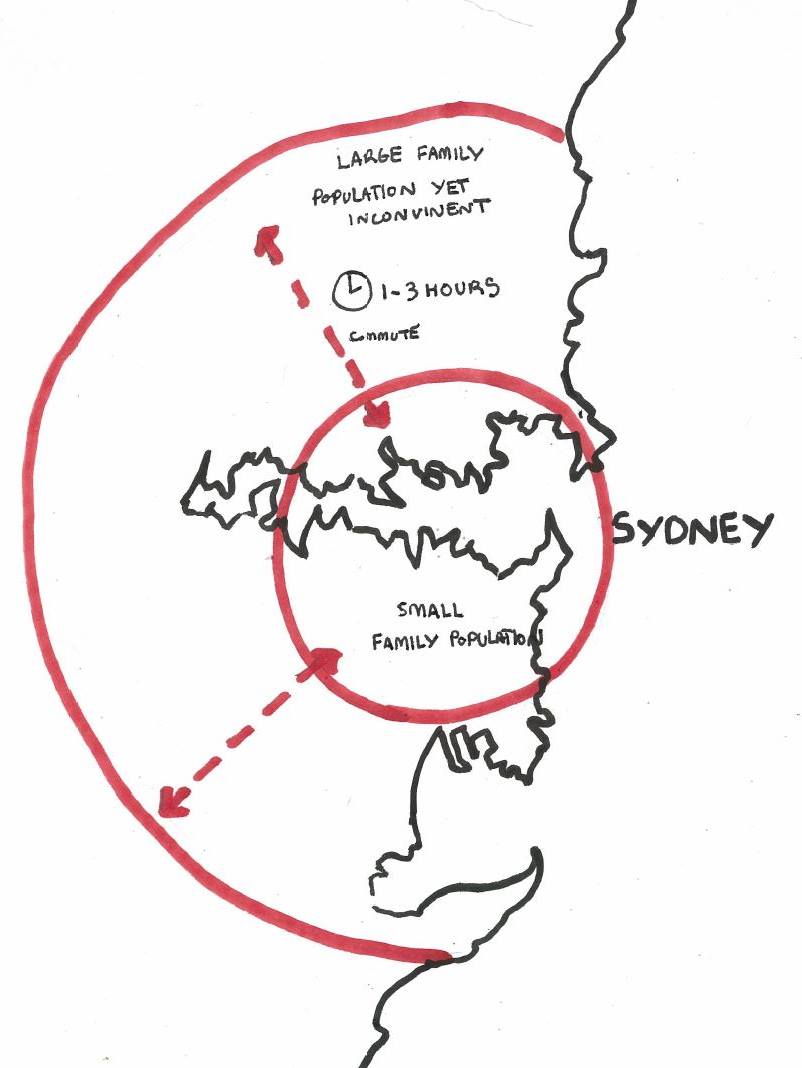 LARGE FAMILY
POPULATION YET
INCONVINENT
1-3 HOURS
COMMUTE
SYDNEY
SMALL
FAMILY POPULATION